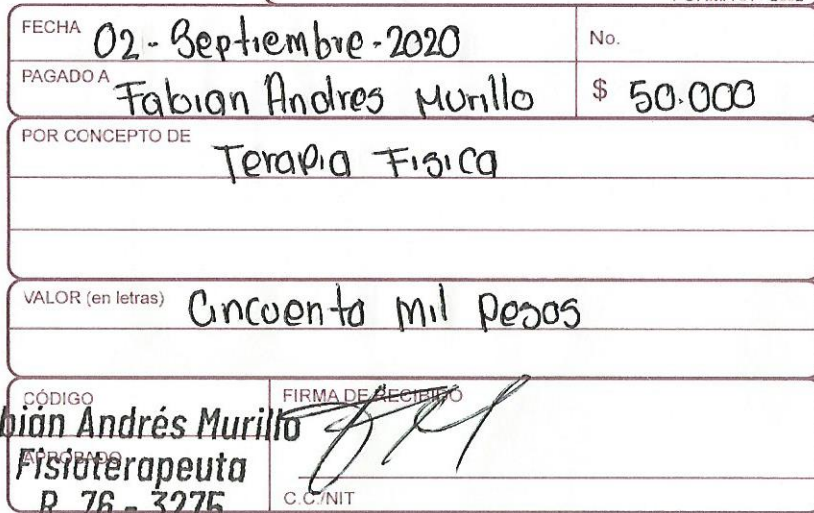 FECHA 02-Septiembre-2020
No.
PAGADO A Fabian Andres Murillo
$ 50.000
POR CONCEPTO DE Terapia Fisica
VALOR (en letras) Cincuenta Mil pesos
CÓDIGO
FIRMA DE RECIBIDO
bián Andrés Murillo
APROBADO
Fisioterapeuta
R. 76 - 3275
C.C./NIT